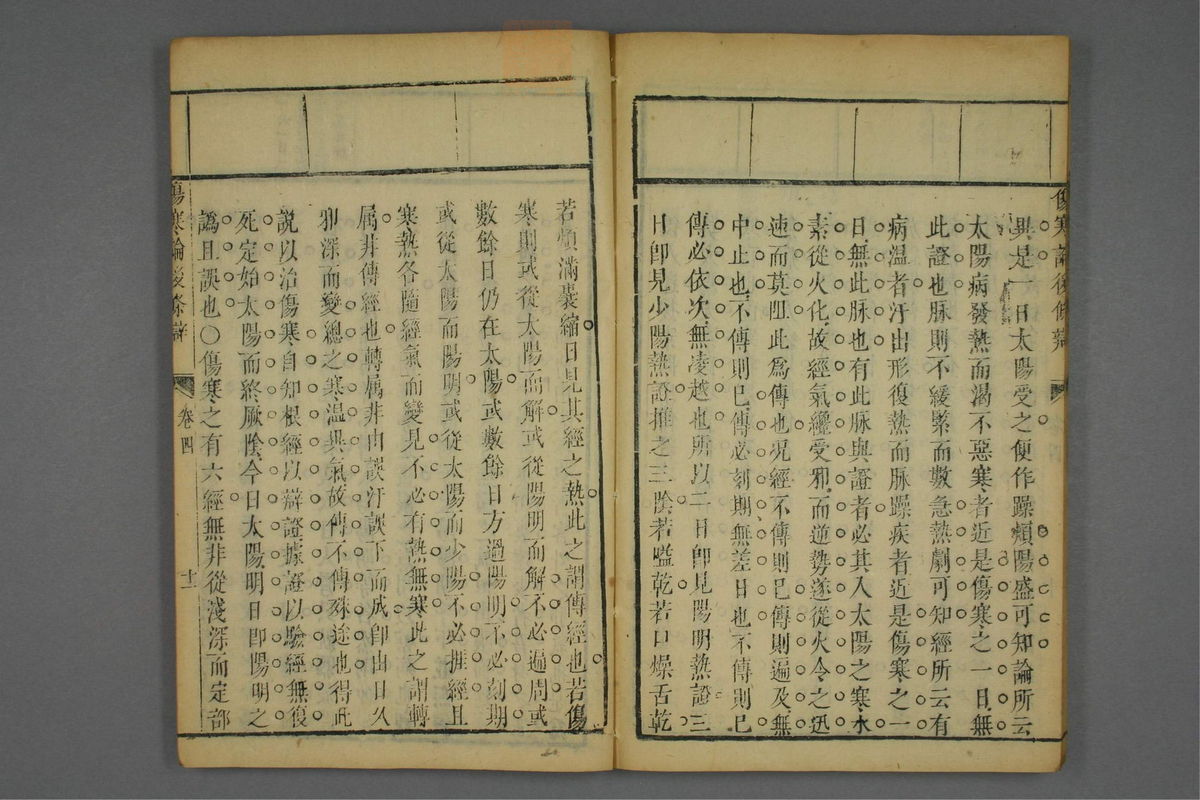 傷寒論後條辯
異是一日太陽受之便作躁煩陽盛可知論所云
太陽病發熱而渴不惡寒者近是傷寒之一日無
此證也脉則不緩緊而數急熱劇可知經所云有
病溫者汗出形復熱而脉躁疾者近是傷寒之一
日無此脉也有此脉與證者必其人太陽之寒水
素從火化故經氣纔受邪而逆勢遂從火令之迅
速而莫阻此爲傳也況經不傳則已傳則遍及無
中止也不傳則已傳必刻期無差日也不傳則已
傳必依次無凌越也所以二日卽見陽明熱證三
日卽見少陽熱證推之三陰若嗌乾若口燥舌乾
若煩滿囊縮日見其經之熱此之謂傳經也若傷
寒則或從太陽而解或從陽明而解不必遍周或
數餘日仍在太陽或數餘日方過陽明不必刻期
或從太陽而陽明或從太陽而少陽不必捱經且
寒熱各隨經氣而變見不必有熱無寒此之謂轉
属非傳經也轉属非由誤汗誤下而成卽由日久
邪深而變總之寒溫與氣故傳不傳殊途也得此
説以治傷寒自知根經以辯證據證以驗經無復
死定始太陽而終厥陰今日太陽明日卽陽明之
譌且誤也〇傷寒之有六經無非從淺深而定部
傷寒論後條辯
卷四
十二